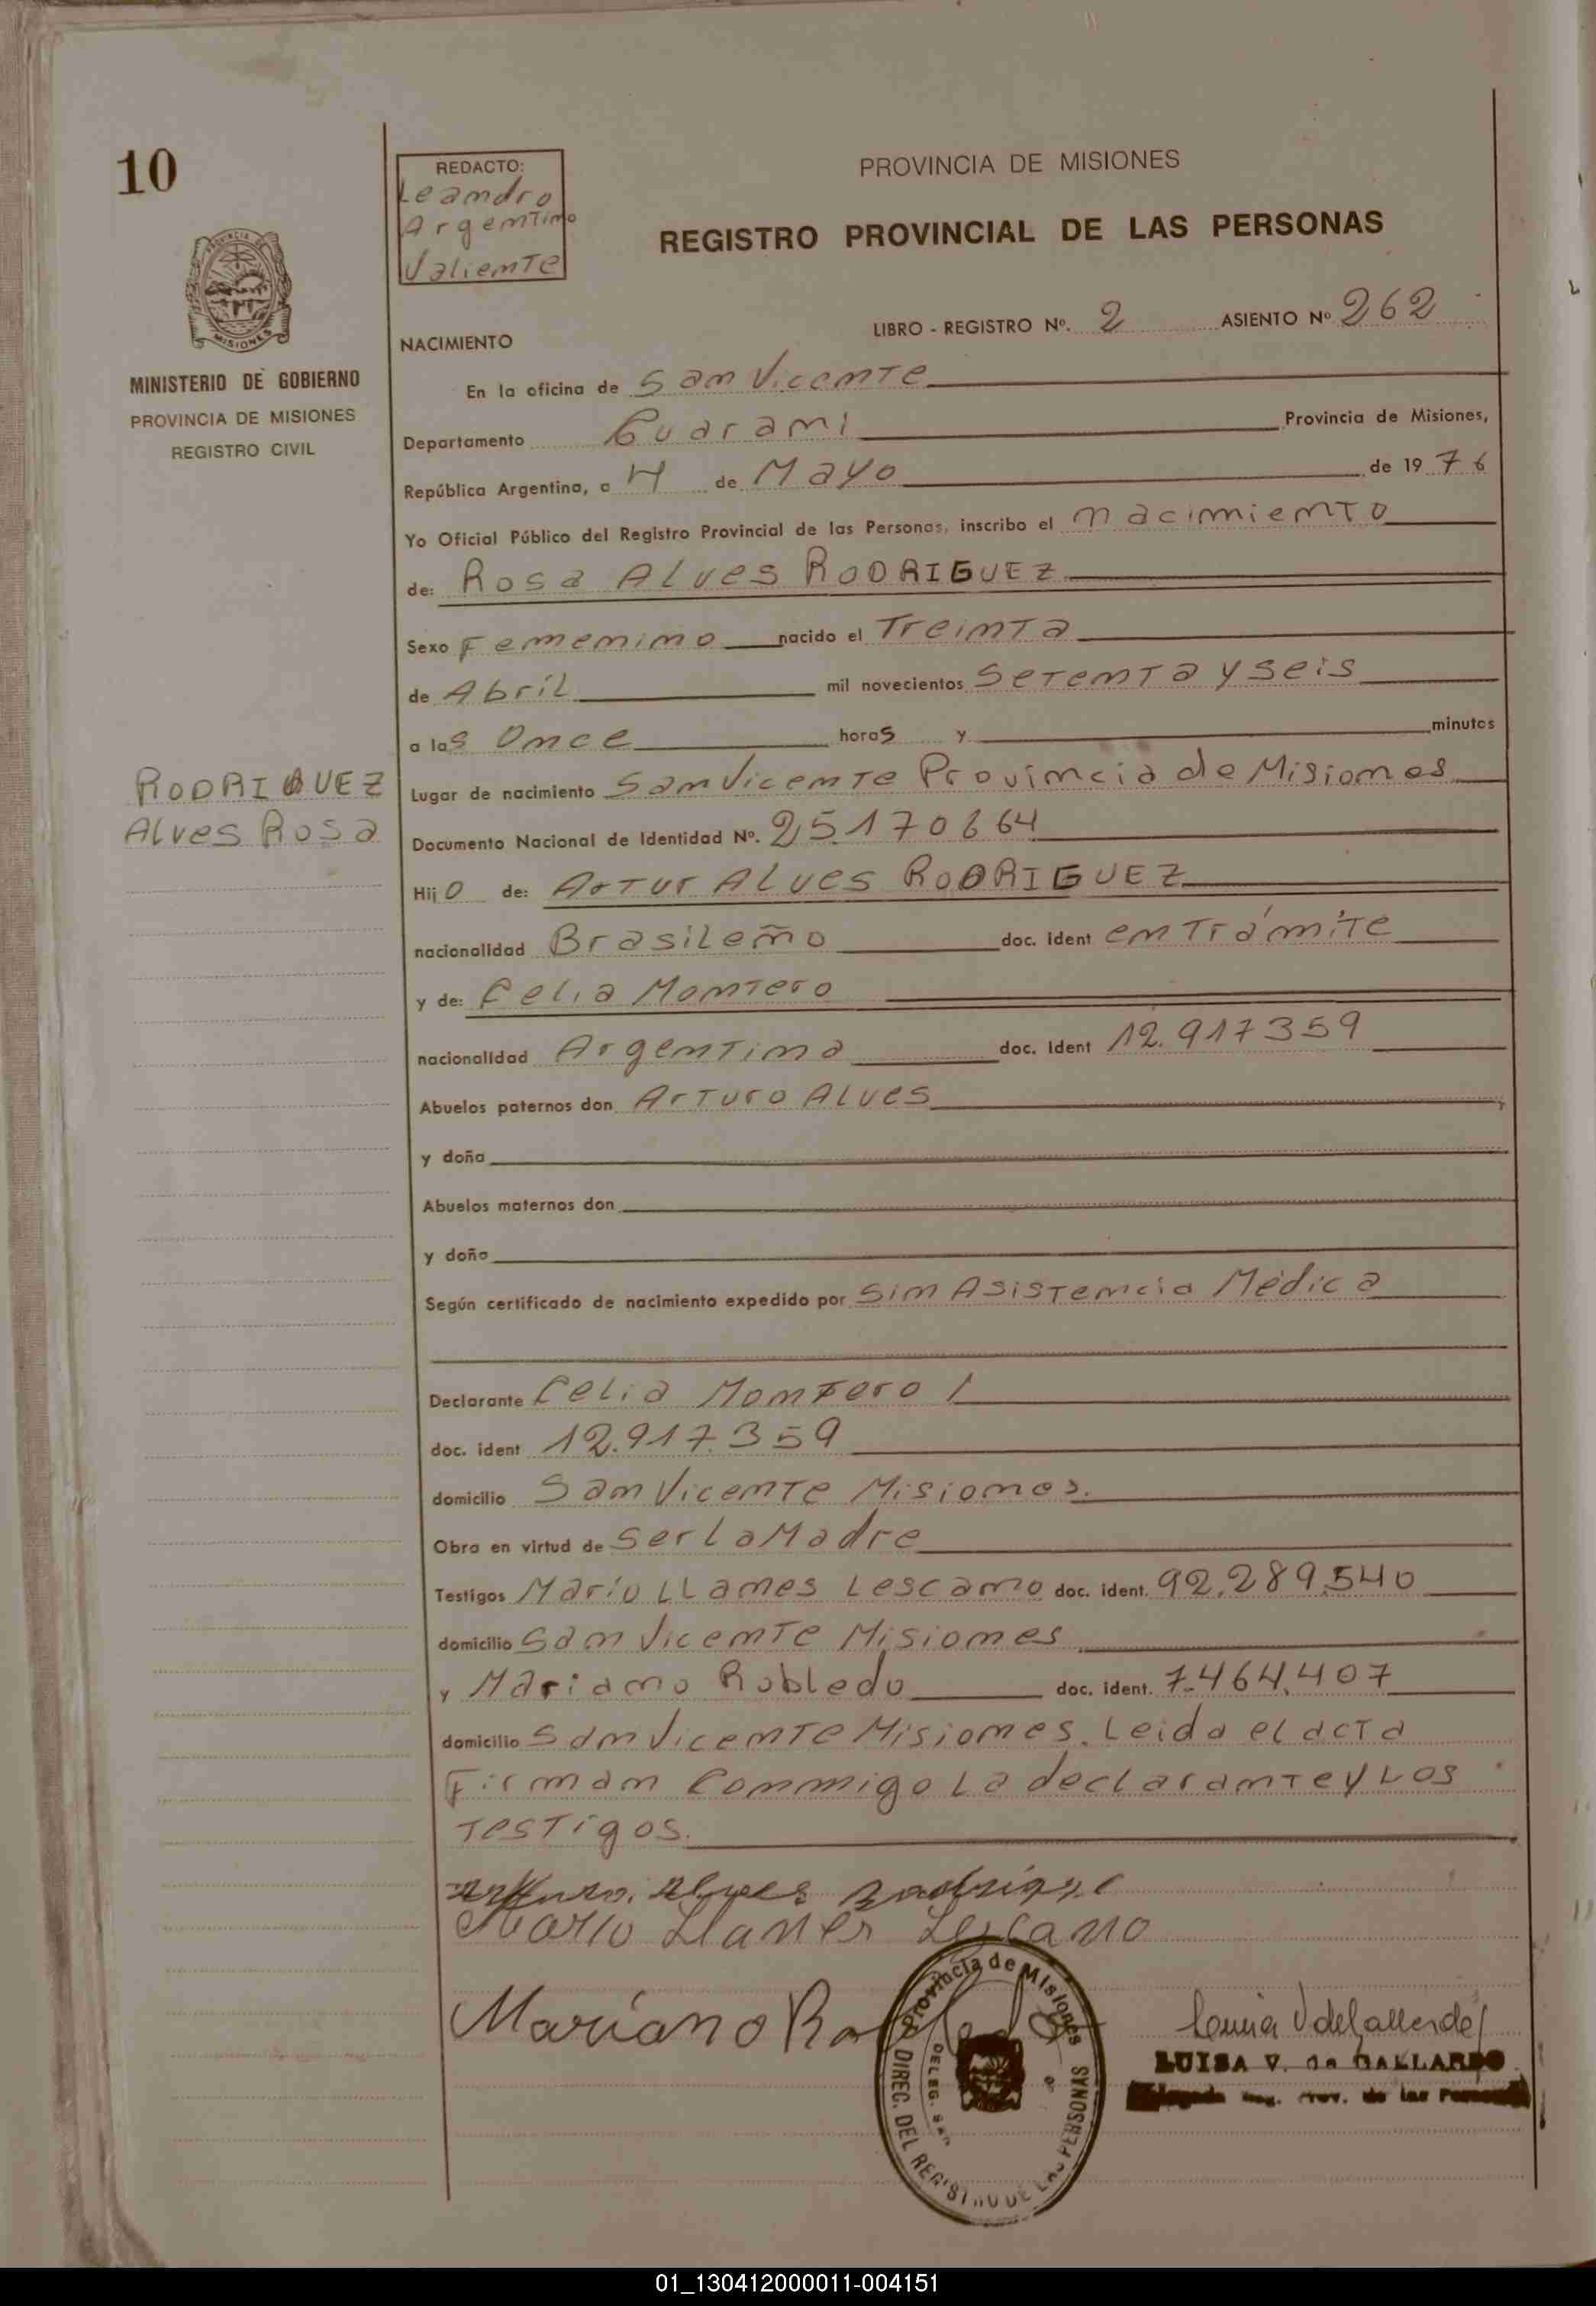 10
REDACTO:
Leandro
Argentino
Valiente
PROVINCIA DE MISIONES
REGISTRO PROVINCIAL DE LAS PERSONAS
PROVINCIA DE
MISIONES
MINISTERIO DE GOBIERNO
PROVINCIA DE MISIONES
REGISTRO CIVIL
LIBRO - REGISTRO Nº. 2 ASIENTO Nº 262
NACIMIENTO
En la oficina de San Vicente
Departamento Guarani Provincia de Misiones,
República Argentina, a 4 de Mayo de 1976
Yo Oficial Público del Registro Provincial de las Personas, inscribo el nacimiento
de: Rosa Alves RODRIGUEZ
Sexo Femenino nacido el Treinta
de Abril mil novecientos Setenta y seis
a las Once horas y minutos
RODRIGUEZ
Alves Rosa
Lugar de nacimiento San Vicente Provincia de Misiones
Documento Nacional de Identidad Nº. 25.170.664
Hijo de: Artur Alves RODRIGUEZ
nacionalidad Brasileño doc. ident en Trámite
y de: Celia Montero
nacionalidad Argentina doc. ident 12.917359
Abuelos paternos don Arturo Alves
y doña
Abuelos maternos don
y doña
Según certificado de nacimiento expedido por Sin Asistencia Médica
Declarante Celia Montero
doc. ident 12.917.359
domicilio San Vicente Misiones.
Obra en virtud de Ser La Madre
Testigos Mario LLanes Lescano doc. ident. 92.289.540
domicilio San Vicente Misiones
y Mariano Robledo doc. ident. 7.464.407
domicilio San Vicente Misiones. Leida el acta
Firman Conmigo La declarante y Los
Testigos.
Mario Llanes Lescano
Mariano Robledo
Provincia de Misiones
DELEG. SAN
DIREC. DEL REGISTRO DE LAS PERSONAS
LUISA V. de GALLARDO
Reg. Prov. de las Personas
01_130412000011-004151